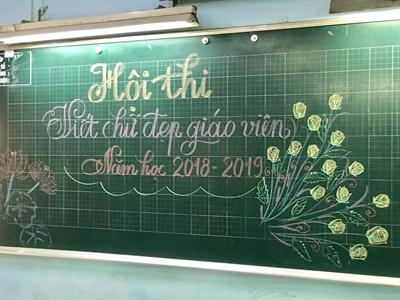 Hội thi
Viết chữ đẹp giáo viên
Năm học 2018-2019